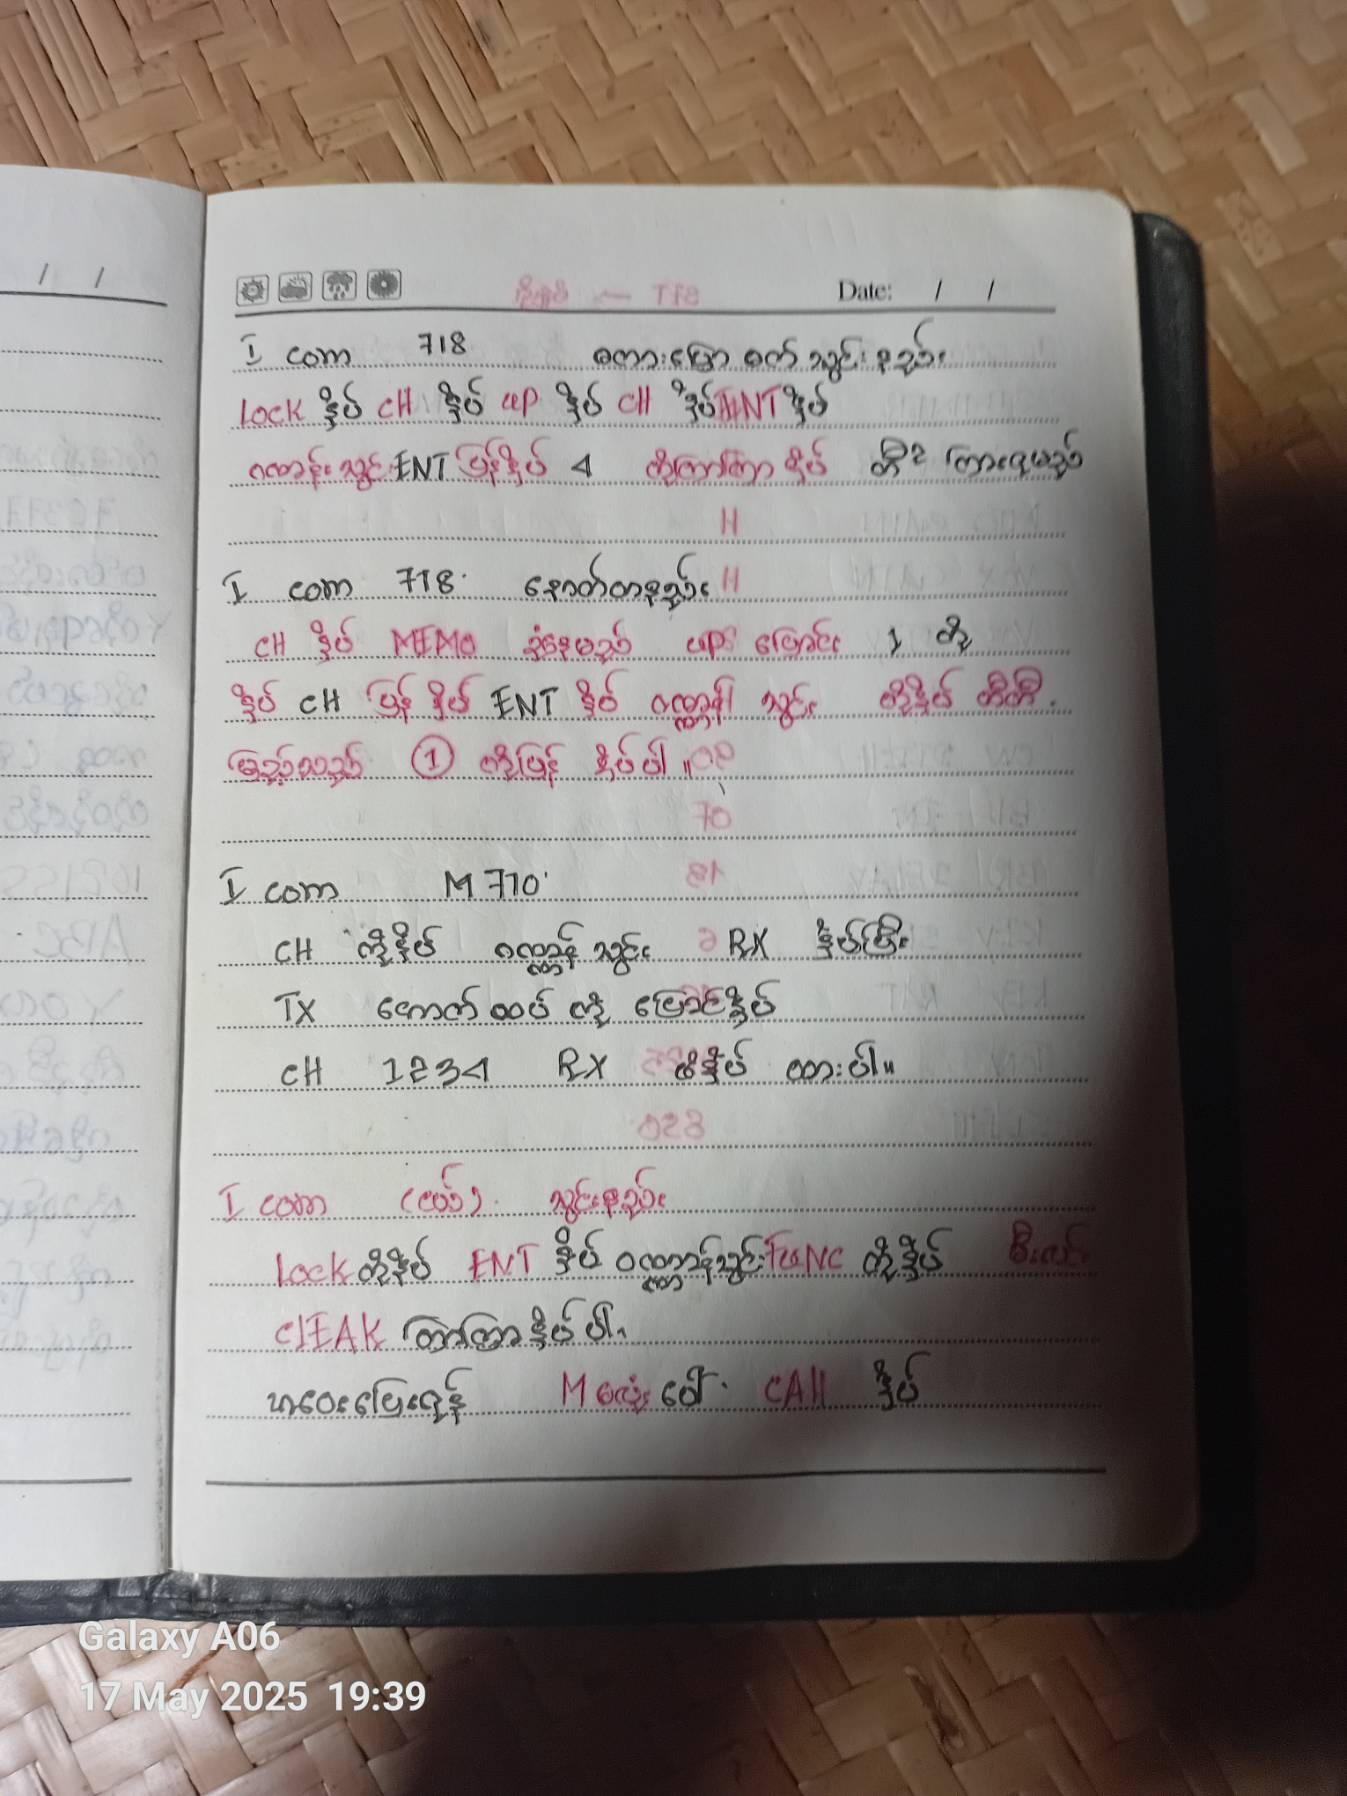 Date: / /
I com 718 စကားပြော စက် သွင်းနည်း
Lock နှိပ် CH နှိပ် up နှိပ် CH နှိပ် ENT နှိပ်
ဂဏန်းသွင်း ENT ပြန်နှိပ် 4 ကိုကြာကြာနှိပ် တီ2 ကြားရမည်
I com 718 နောက်တနည်း
CH နှိပ် MEMO ခုံနေမည် ups ပြောင်း 1 ကို
နှိပ် CH ပြန်နှိပ် ENT နှိပ် ဂဏ္ဏန်း သွင်း ကိုနှိပ် တီတီ
မြည်လည် 1 ကိုပြန် နှိပ်ပါ။
I com M710
CH ကိုနှိပ် ဂဏ္ဏန် သွင်း RX နှိပ်ပြီး
TX ကောက်ထပ် ကို ပြောင်နှိပ်
CH 1234 RX ဖိနှိပ် ထားပါ။
I com (ငယ်) သွင်းနည်း
Lock ကိုနှိပ် ENT နှိပ် ဂဏ္ဏာန်သွင်း FuNC ကိုနှိပ်
ClEAK ကြာကြာနှိပ်ပါ
ဟဝေးပြေးရန် M လုံး ပေါ် CAll နှိပ်
Galaxy A06
17 May 2025 19:39